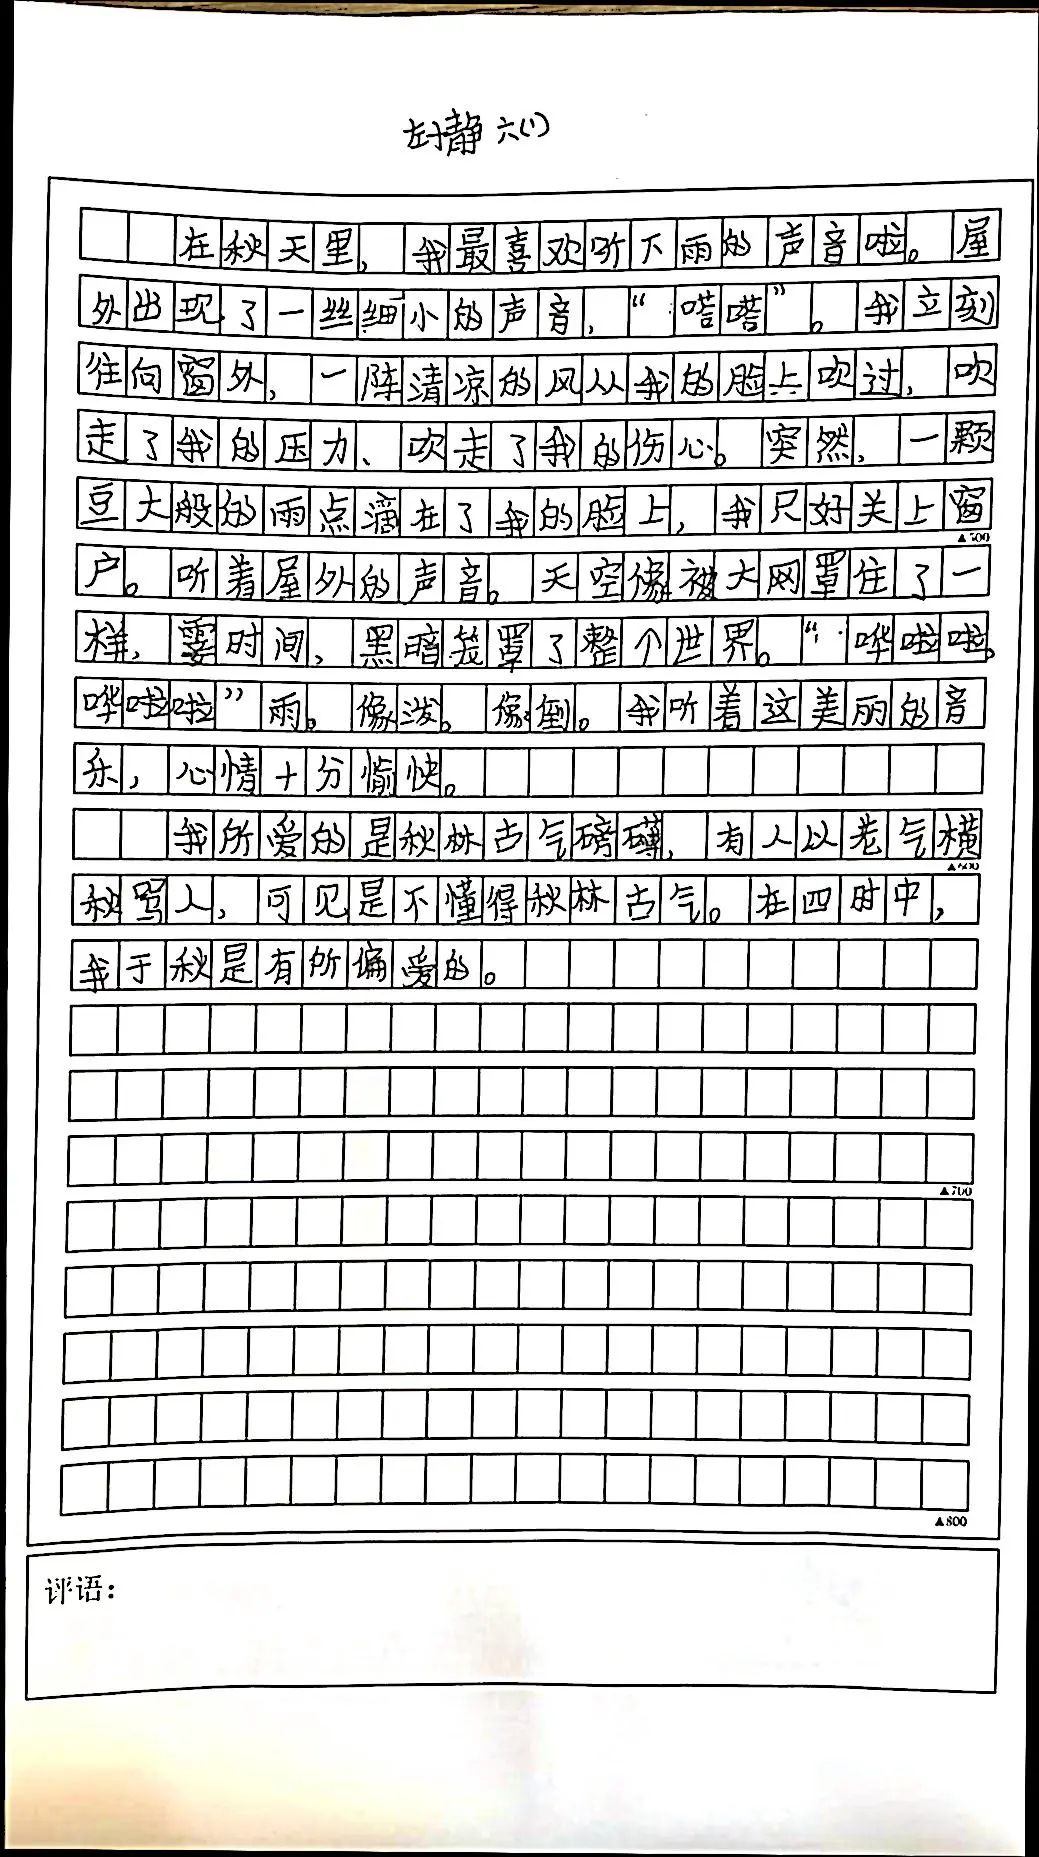 静 六(1)
在秋天里，我最喜欢听下雨的声音啦。屋
外出现了一丝细小的声音，“嗒嗒”。我立刻
往向窗外，一阵清凉的风从我的脸上吹过，吹
走了我的压力、吹走了我的伤心。突然，一颗
豆大般的雨点滴在了我的脸上，我只好关上窗
▲500
户。听着屋外的声音。天空像被大网罩住了一
样，霎时间，黑暗笼罩了整个世界。“哗啦啦。
哗啦啦”雨。像泼。像倒。我听着这美丽的音
乐，心情十分愉快。
我所爱的是秋林古气磅礴，有人以老气横
▲600
秋骂人，可见是不懂得秋林古气。在四时中，
我于秋是有所偏爱的。
▲700
▲800
评语：